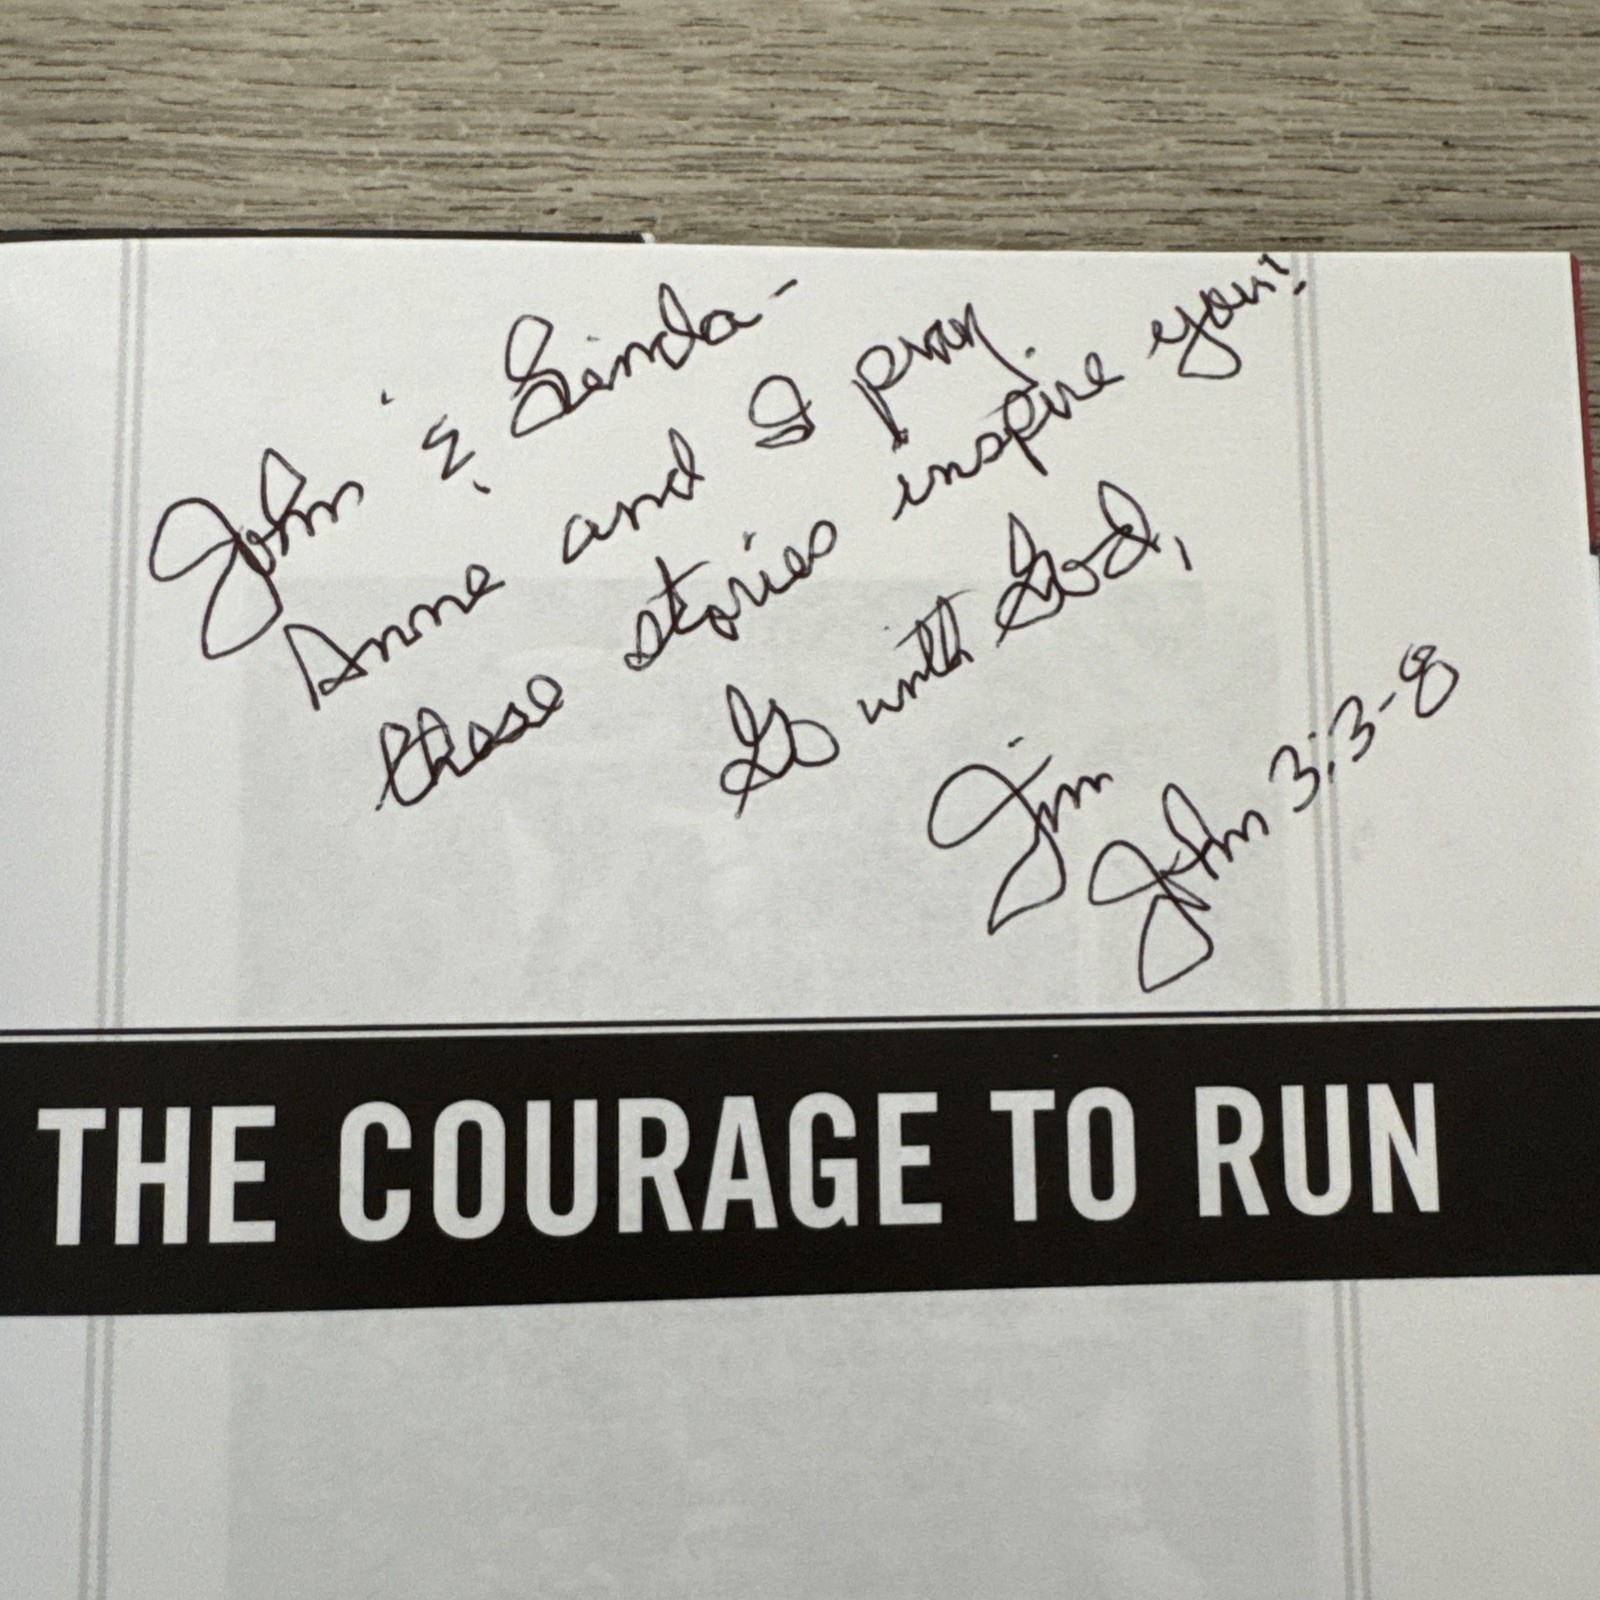 John & Linda -
Anne and I pray
these stories inspire you!
Go with God,
Jim
John 3:3-8
THE COURAGE TO RUN